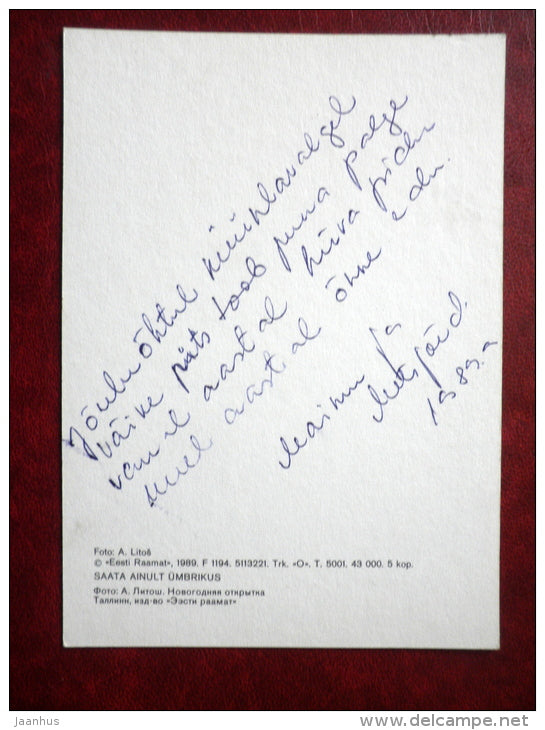 Jõuluõhtul küünlavalgel
väike piits toob puna palge
vanal aastal hüva pidu
uuel aastal õnne edu.
ja
1989. a
Foto: A. Litoš
© «Eesti Raamat», 1989. F 1194. 5113221. Trk. «O». T. 5001. 43 000. 5 kop.
SAATA AINULT ÜMBRIKUS
Фото: А. Литош. Новогодняя открытка
Таллинн, изд-во «Ээсти раамат»
jaanhus
www.delcampe.net